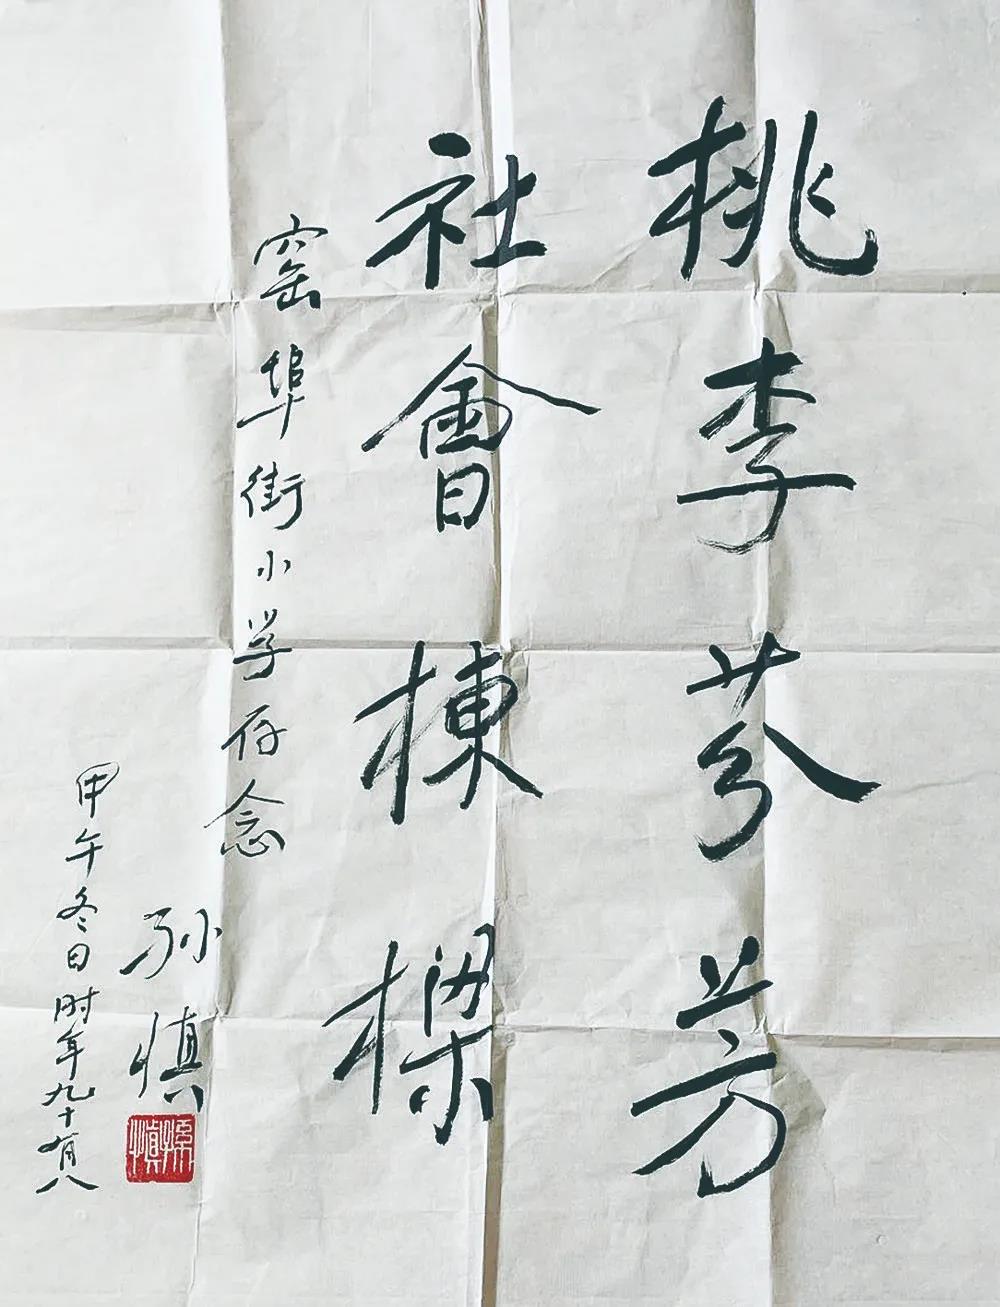 桃李芬芳
社會棟樑
窑埠街小学存念
孙慎
甲午冬日时年九十有八
孫慎